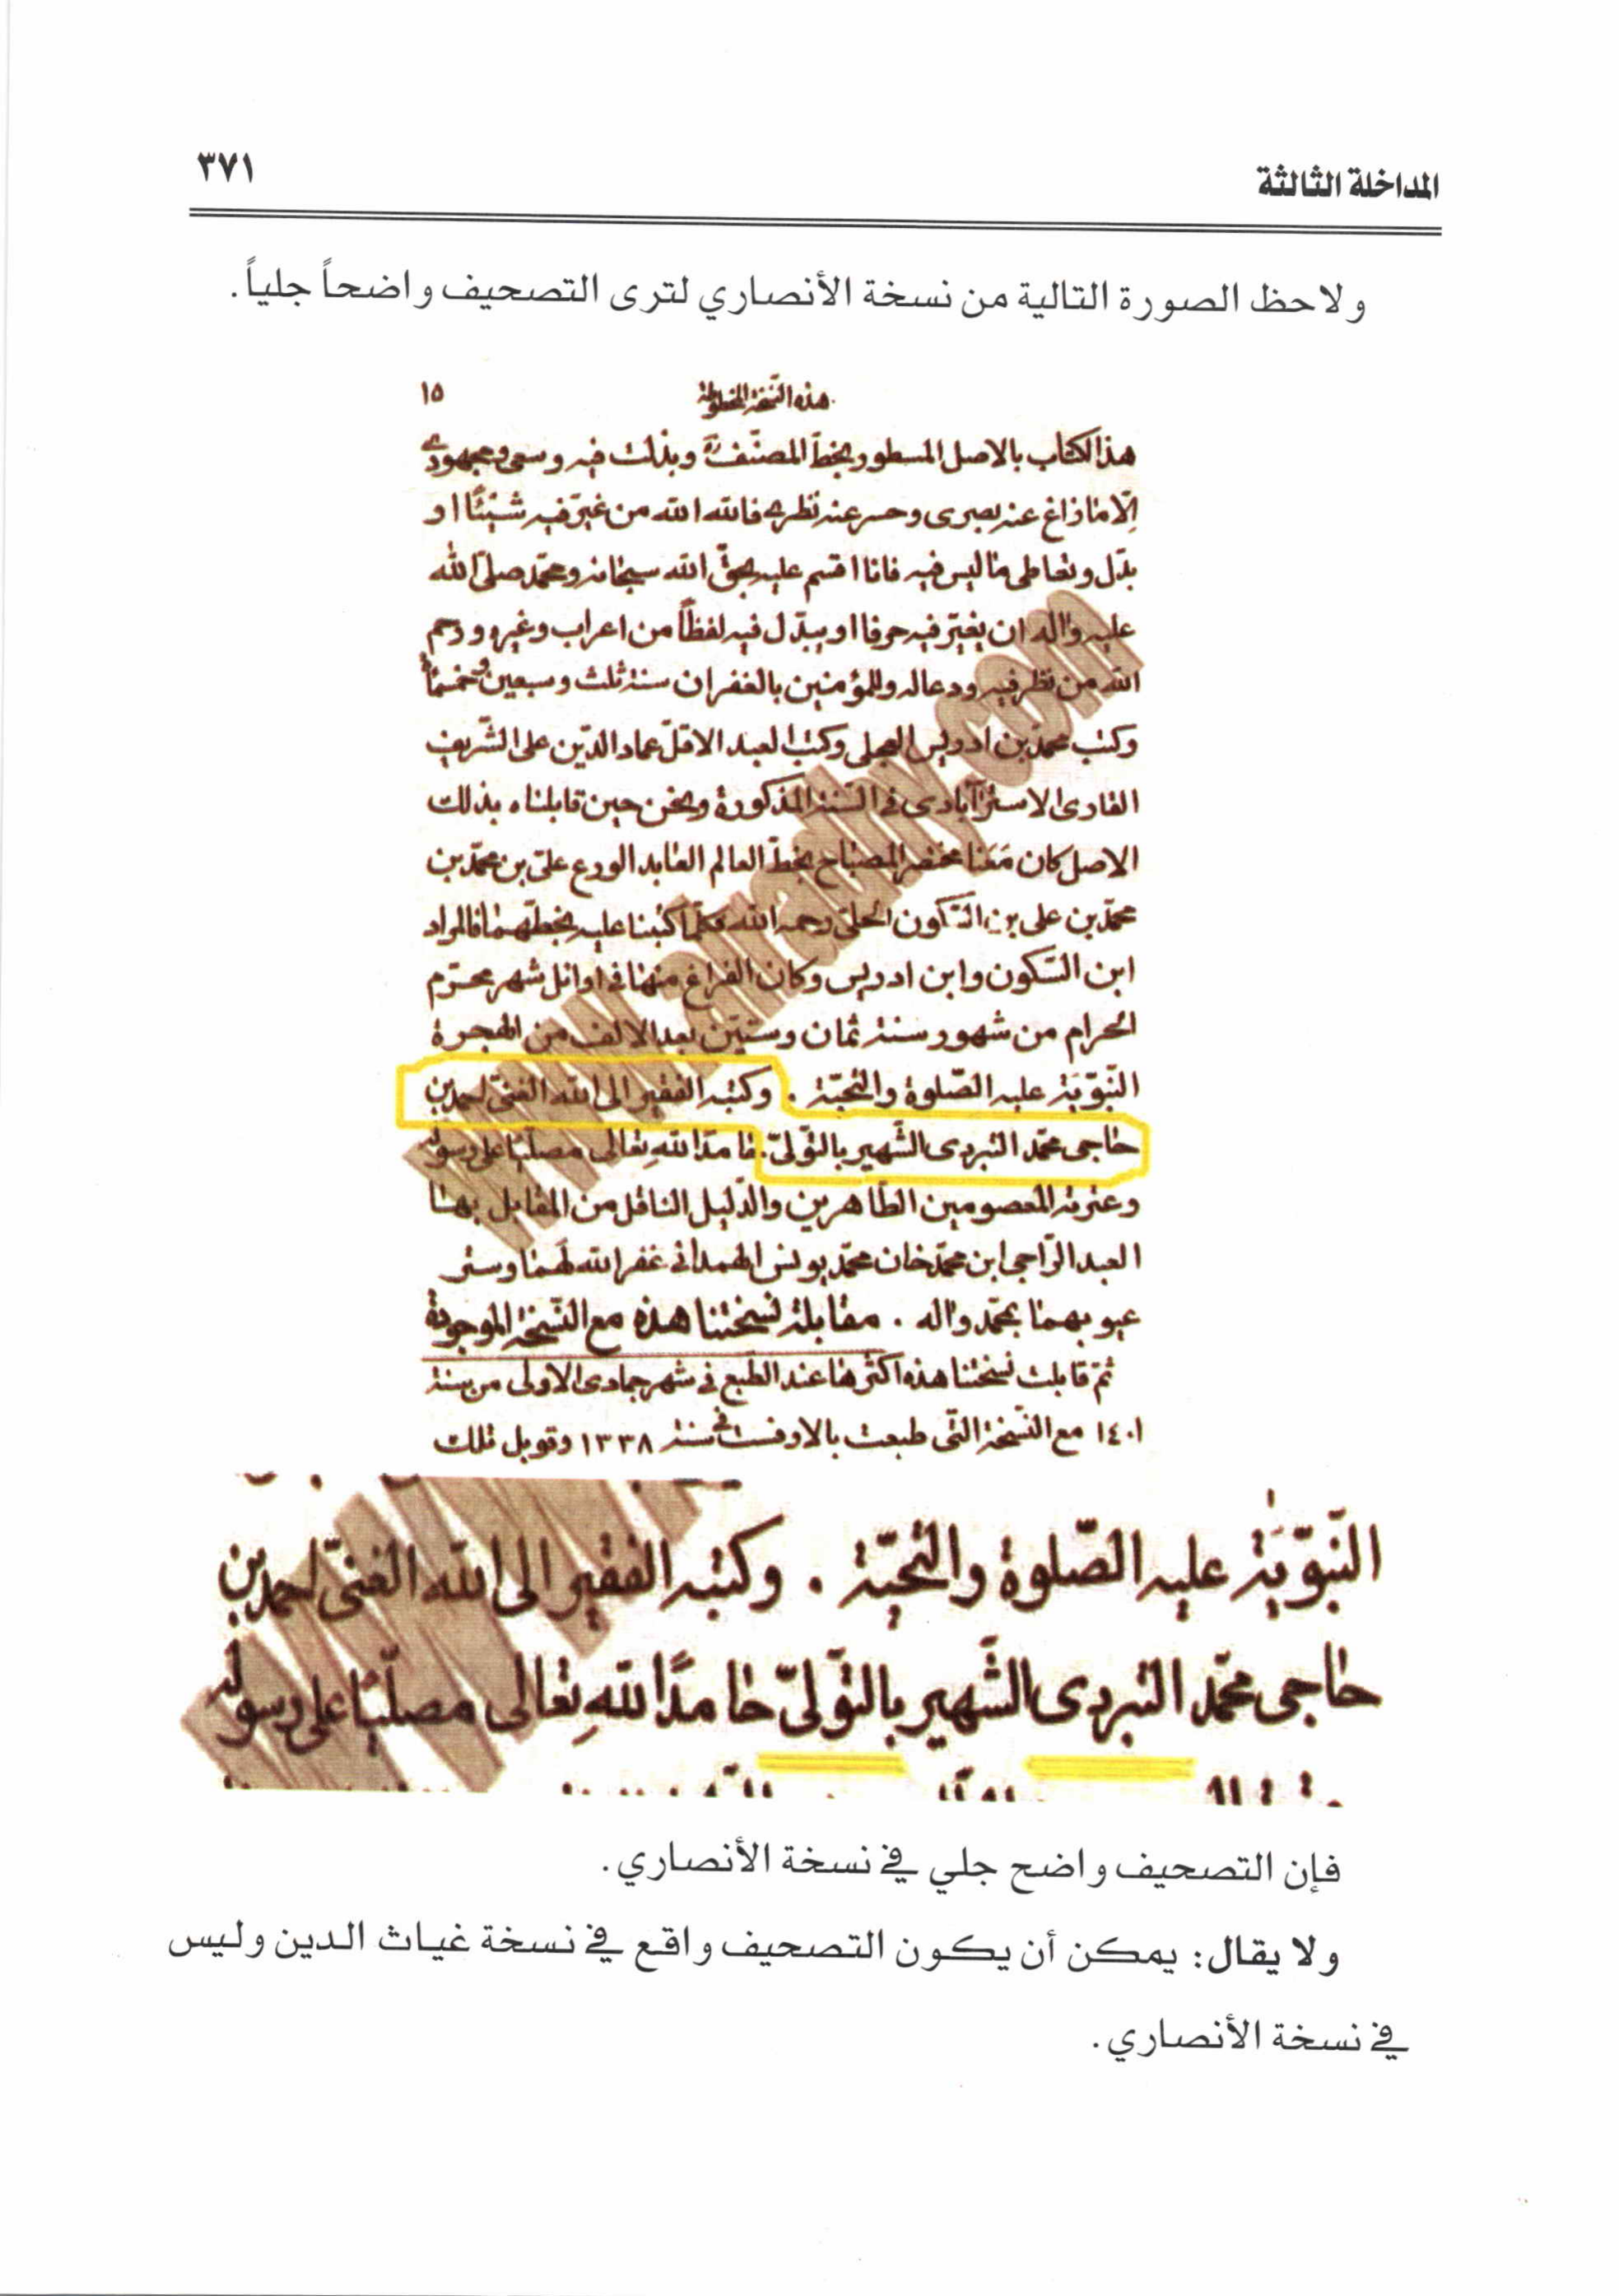 المداخلة الثالثة ٣٧١
ولاحظ الصورة التالية من نسخة الأنصاري لترى التصحيف واضحاً جلياً.
هذه النسخة الخطوطة ١٥
هذا الكتاب بالاصل المسطور بخط المصنّف وبذلت فيه وسعى ومجهودى
الّا ما زاغ عنه بصرى وحسر عنه نظرى فالله الله من غيّر فيه شيئًا او
بدّل وتعاطى ما ليس فيه فانا اقسم عليه بحقّ الله سبحانه ومحمّد صلّى الله
عليه واله ان يغيّر فيه حرفا او يبدّل فيه لفظاً من اعراب وغيره ورحم
الله من نظر فيه ودعا له وللمؤمنين بالغفران سنة ثلث وسبعين وخمسمأة
وكتب محمّد بن ادريس العجلى وكتب العبد الاقلّ عماد الدّين على الشّريف
القارى الاسترآبادى فى السّنة المذكورة ونحن حين قابلناه بذلك
الاصل كان مَعَنا مختصر المصباح بخطّ العالم العابد الورع علىّ بن محمّد بن
محمّد بن على بن السّكون الحلّى رحمه الله فكلّما كتبنا عليه بخطّهما فالمراد
ابن السّكون وابن ادريس وكان الفراغ منها فى اوائل شهر محرّم
الحرام من شهور سنة ثمان وستّين بعد الالف من الهجرة
النّبوّية عليه الصّلوة والتّحيّة . وكتبه الفقير الى الله الغنىّ احمد بن
حاجى محمّد التبردى الشّهير بالتّولىّ. حامدًا للهِ تعالى مصلّيًا على رسوله
وعترته المعصومين الطّاهرين والدّليل الناقل من المقابل بهما
العبد الرّاجى ابن محمّد خان محمّد يونس الهمدانى غفر الله لهَما وستر
عيوبهما بمحمّد واله . مقابلة نسختنا هذه مع النّسخة الموجودة
ثمّ قابلت نسختنا هذه اكثرها عند الطّبع فى شهر جمادى الاولى من سنة
١٤٠١ مع النّسخة الّتى طبعت بالاوفست فى سنة ١٣٣٨ وقوبل تلك
النّبوّية عليه الصّلوة والتّحيّة . وكتبه الفقير الى الله الغنىّ احمد بن
حاجى محمّد التبردى الشّهير بالتّولىّ حامدًا للهِ تعالى مصلّيًا على رسوله
فإن التصحيف واضح جلي في نسخة الأنصاري.
ولا يقال: يمكن أن يكون التصحيف واقع في نسخة غياث الدين وليس
في نسخة الأنصاري.